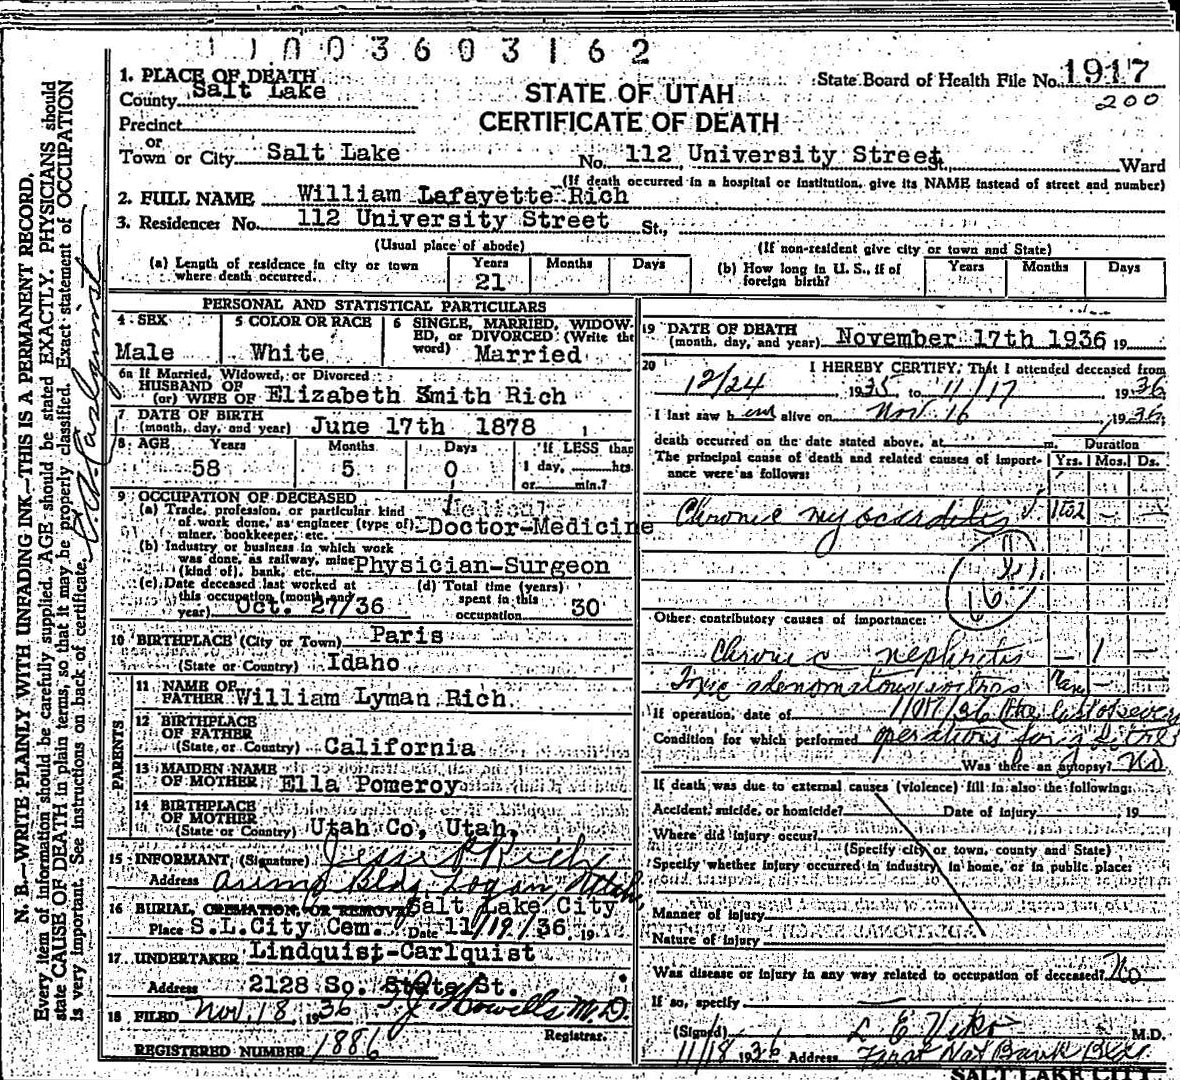 11003603162
1. PLACE OF DEATH
State Board of Health File No. 1917
County Salt Lake
STATE OF UTAH
200
Precinct
CERTIFICATE OF DEATH
or
Town or City Salt Lake No. 112 University Street St. Ward
(If death occurred in a hospital or institution, give its NAME instead of street and number)
2. FULL NAME William Lafayette Rich
3. Residence: No. 112 University Street St.,
(Usual place of abode) (If non-resident give city or town and State)
(a) Length of residence in city or town where death occurred. Years 21 Months Days
(b) How long in U. S., if of foreign birth? Years Months Days
PERSONAL AND STATISTICAL PARTICULARS
4 SEX Male
5 COLOR OR RACE White
6 SINGLE, MARRIED, WIDOWED, or DIVORCED: (Write the word) Married
6a If Married, Widowed, or Divorced
HUSBAND OF
(or) WIFE OF Elizabeth Smith Rich
7 DATE OF BIRTH
(month, day, and year) June 17th 1878
8 AGE Years 58 Months 5 Days 0 If LESS than 1 day, hrs. or min.?
9 OCCUPATION OF DECEASED
(a) Trade, profession, or particular kind
of work done, as engineer (type of)
miner, bookkeeper, etc. Medical Doctor-Medicine
(b) Industry or business in which work
was done, as railway, mine
(kind of), bank, etc. Physician-Surgeon
(c) Date deceased last worked at
this occupation (month and
year) Oct. 27/36
(d) Total time (years)
spent in this
occupation 30
10 BIRTHPLACE (City or Town) Paris
(State or Country) Idaho
PARENTS
11 NAME OF
FATHER William Lyman Rich
12 BIRTHPLACE
OF FATHER
(State or Country) California
13 MAIDEN NAME
OF MOTHER Ella Pomeroy
14 BIRTHPLACE
OF MOTHER
(State or Country) Utah Co, Utah,
15 INFORMANT (Signature) Jesse P Rich
Address Arimo Bldg, Logan, Utah,
16 BURIAL, CREMATION, OR REMOVAL Salt Lake City
Place S.L.City Cem. Date 11/19/36 19
17 UNDERTAKER Lindquist-Carlquist
Address 2128 So. State St.
18 FILED Nov. 18, 1936 T J Howells M.D.
Registrar.
REGISTERED NUMBER 1886
19 DATE OF DEATH
(month, day, and year) November 17th 1936 19
20 I HEREBY CERTIFY, That I attended deceased from
12/24 1935, to 11/17 1936
I last saw him alive on Nov. 16, 1936
death occurred on the date stated above, at m. Duration
The principal cause of death and related causes of importance were as follows: Yrs. Mos. Ds.
Chronic myocarditis 1 to 2
Other contributory causes of importance:
Chronic nephritis — 1 —
Toxic adenomatous goitre Many — —
If operation, date of (the last of seven
Condition for which performed operations for goitre)
Was there an autopsy? No
If death was due to external causes (violence) fill in also the following:
Accident, suicide, or homicide? Date of injury , 19
Where did injury occur?
(Specify city or town, county and State)
Specify whether injury occurred in industry, in home, or in public place:
Manner of injury
Nature of injury
Was disease or injury in any way related to occupation of deceased? No
If so, specify —
(Signed) L E Viko M.D.
11/18 1936 Address First Nat Bank Bldg.
SALT LAKE CITY
N. B.—WRITE PLAINLY WITH UNFADING INK—THIS IS A PERMANENT RECORD.
Every item of information should be carefully supplied. AGE should be stated EXACTLY. PHYSICIANS should
state CAUSE OF DEATH in plain terms, so that it may be properly classified. Exact statement of OCCUPATION
is very important. See instructions on back of certificate.
Carlquist